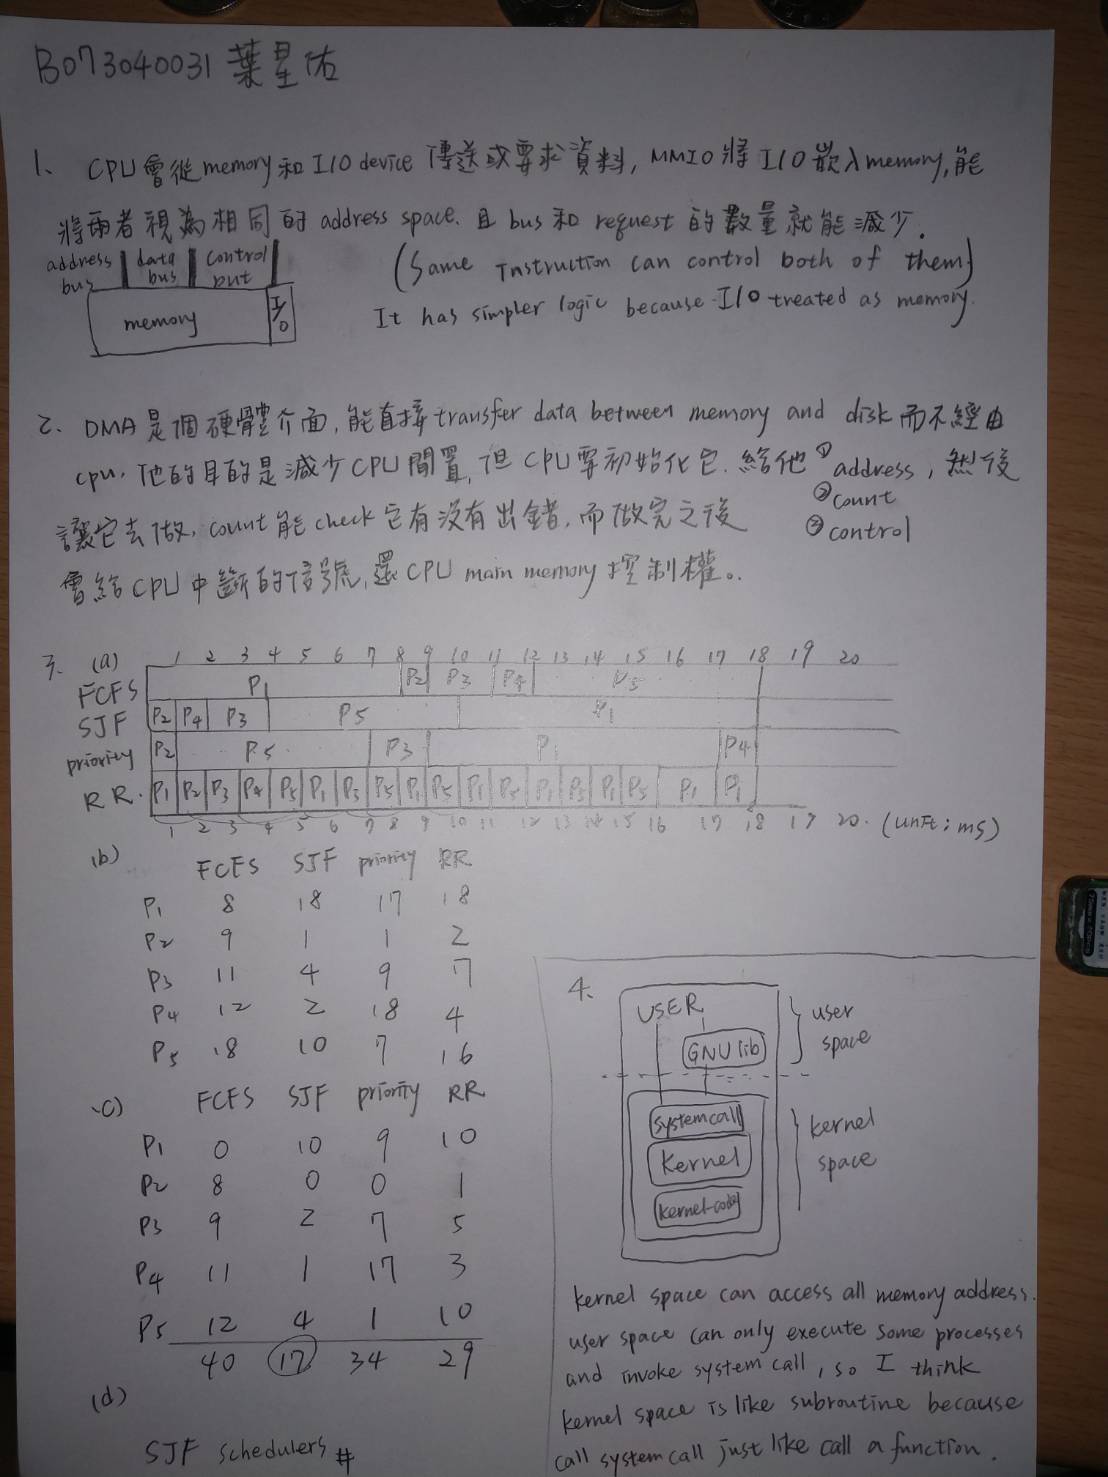 B073040031 葉星佑
1、 CPU會從memory和I/O device 傳送或要求資料, MMIO將I/O嵌入memory,能
將兩者視為相同的address space. 且 bus和 request 的數量就能減少.
address bus data bus control but
memory I/O
(Same Instruction can control both of them)
It has simpler logic because I/O treated as memory.
2、 DMA是個硬體介面,能直接transfer data between memory and disk而不經由
cpu, 他的目的是減少CPU閒置,但CPU要初始化它. 給他 ①address, 然後
②count
③control
讓它去做, count能check它有沒有出錯,而做完之後
會給CPU中斷的信號,還CPU main memory控制權。
3. (a) 1 2 3 4 5 6 7 8 9 10 11 12 13 14 15 16 17 18 19 20
FCFS P1 P2 P3 P4 P5
SJF P2 P4 P3 P5 P1
priority P2 P5 P3 P1 P4
RR. P1 P2 P3 P4 P5 P1 P3 P5 P1 P5 P1 P5 P1 P5 P1 P5 P1 P1
1 2 3 4 5 6 7 8 9 10 11 12 13 14 15 16 17 18 19 20. (unit: ms)
(b)
FCFS SJF priority RR
P1 8 18 17 18
P2 9 1 1 2
P3 11 4 9 7
P4 12 2 18 4
P5 18 10 7 16
(c) FCFS SJF priority RR
P1 0 10 9 10
P2 8 0 0 1
P3 9 2 7 5
P4 11 1 17 3
P5 12 4 1 10
40 17 34 29
(d)
SJF schedulers #
4、
USER
GNU lib
user space
systemcall
Kernel
kernel-code
kernel space
kernel space can access all memory address.
user space can only execute some processes
and invoke system call, so I think
kernel space is like subroutine because
call system call just like call a function.